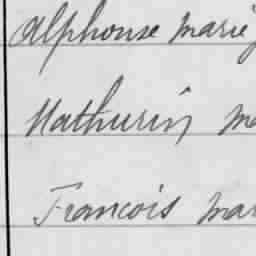 Alphonse marie
Mathurin ma
Francois mar